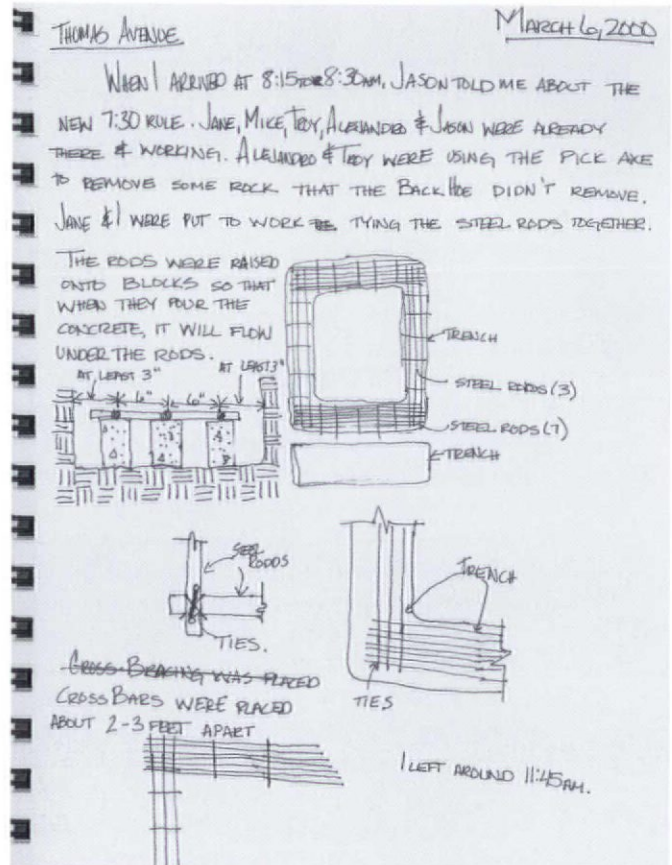 THOMAS AVENUE
MARCH 6, 2000
WHEN I ARRIVED AT 8:15 OR 8:30AM, JASON TOLD ME ABOUT THE
NEW 7:30 RULE. JANE, MIKE, TROY, ALEJANDRO & JASON WERE ALREADY
THERE & WORKING. ALEJANDRO & TROY WERE USING THE PICK AXE
TO REMOVE SOME ROCK THAT THE BACKHOE DIDN'T REMOVE.
JANE & I WERE PUT TO WORK TYING THE STEEL RODS TOGETHER.
THE RODS WERE RAISED
ONTO BLOCKS SO THAT
WHEN THEY POUR THE
CONCRETE, IT WILL FLOW
UNDER THE RODS.
AT LEAST 3"
6"
6"
AT LEAST 3"
TRENCH
STEEL RODS (3)
STEEL RODS (7)
TRENCH
STEEL
RODDS
TIES.
TRENCH
TIES
CROSS-BRACING WAS PLACED
CROSS BARS WERE PLACED
ABOUT 2-3 FEET APART
I LEFT AROUND 11:45AM.